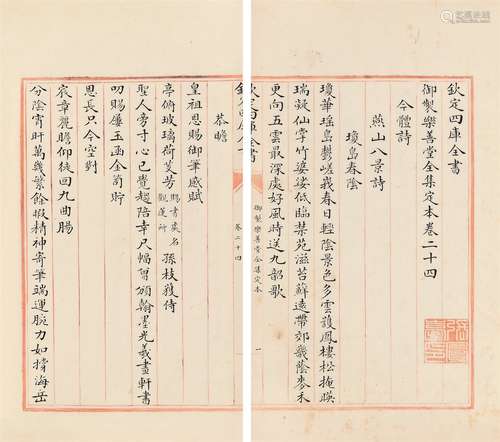 欽定四庫全書
御製樂善堂全集定本卷二十四
今體詩
燕山八景詩
瓊島春陰
瓊華瑶島鬱嵯峩春日輕陰景色多雲護鳳樓松掩映
瑞凝仙掌竹婆娑低臨禁苑滋苔蘚遠帶郊畿蔭麥禾
更向五雲最深處好風時送九韶歌
欽定四庫全書
御製樂善堂全集定本
卷二十四
一
恭瞻
皇祖恩賜御筆感賦
亭俯玻璃荷芰芳
賜書處名
觀蓮所
孫枝獲侍
聖人旁寸心已覺超陪幸尺幅曾頒翰墨光羲畫軒書
叨賜錫玉函金笥貯
恩長只今空對
宸章麗瞻仰徒回九曲腸
分陰宵旰萬幾繁餘暇精神寄筆端運腕力如搘海岳